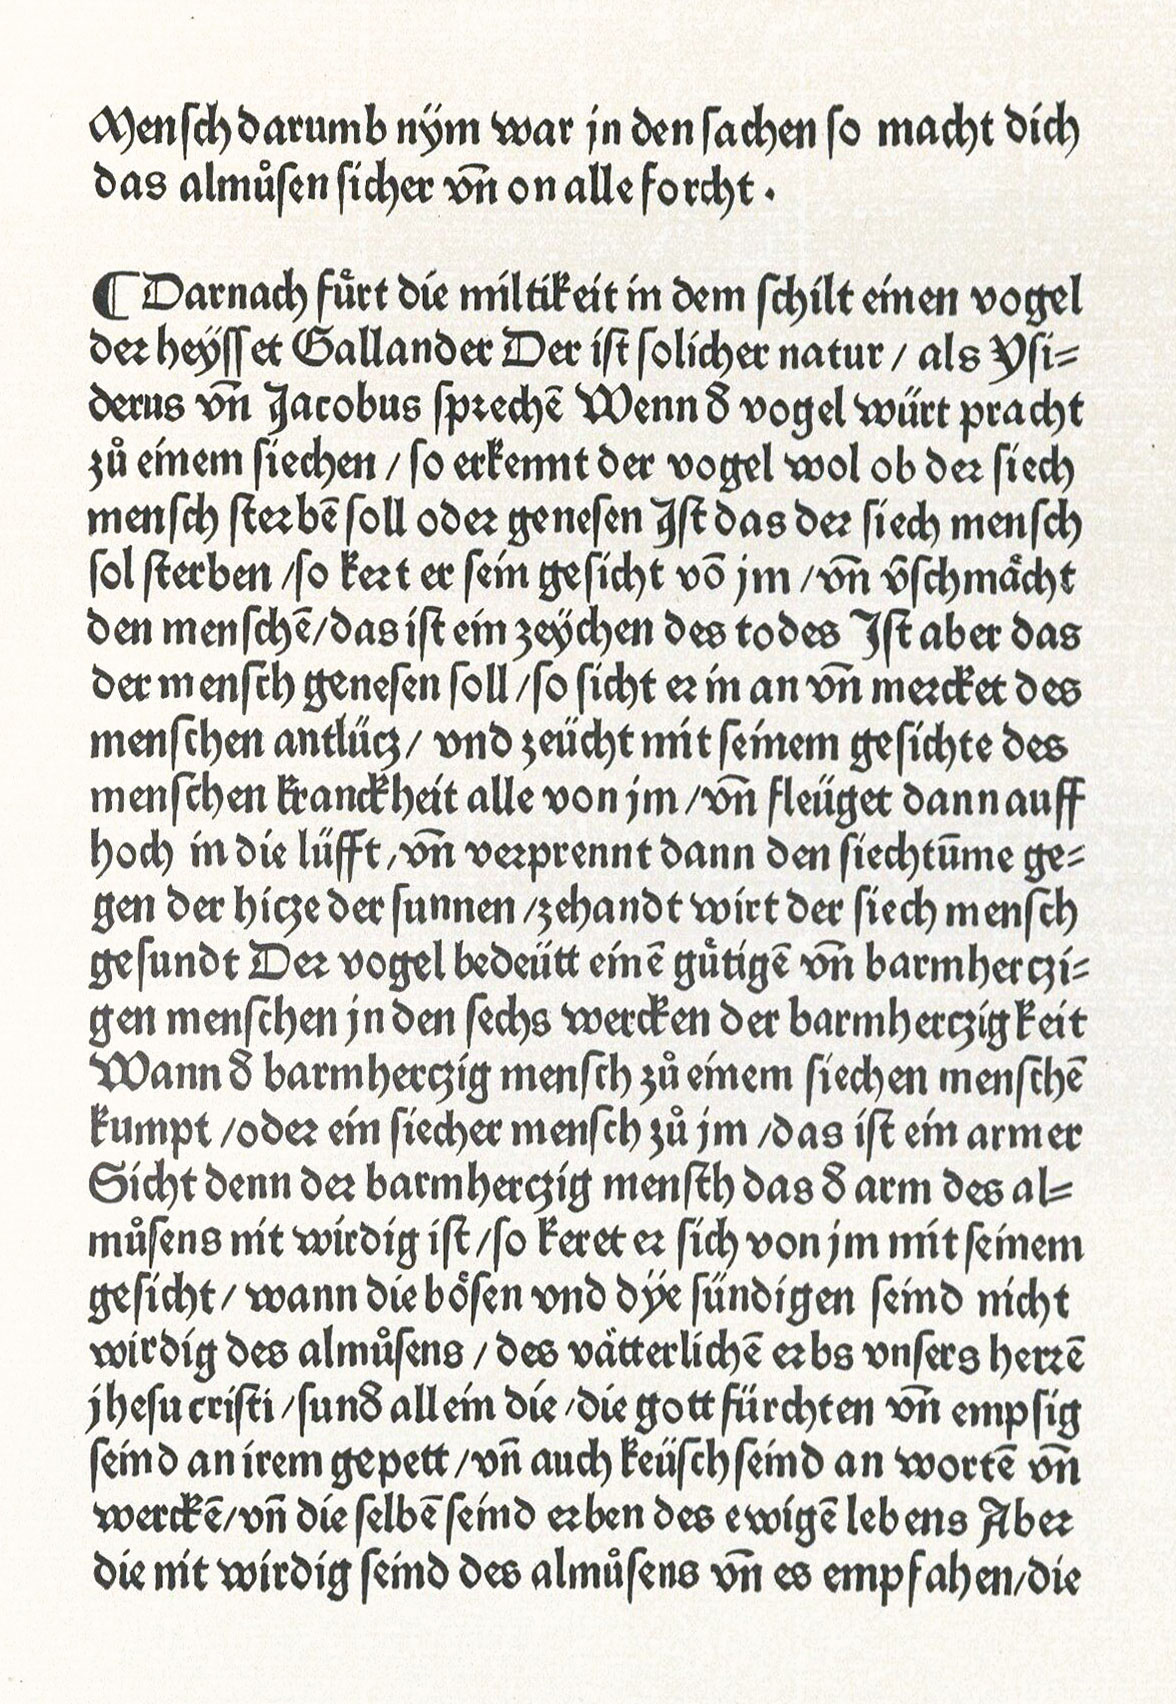 Menſch darumb nÿm war jn den ſachen ſo macht dich
das almůſen ſicher vn̄ on alle forcht .
¶ Darnach fuͤrt die miltikeit in dem ſchilt einen vogel
der heÿſſet Gallander Der iſt ſolicher natur / als Yſi⸗
derus vn̄ Jacobus ſprechē Wenn d̕ vogel würt pracht
zů einem ſiechen / ſo erkennt der vogel wol ob der ſiech
menſch ſterbē ſoll oder geneſen Jſt das der ſiech menſch
ſol ſterben /ſo kert er ſein geſicht vō jm /vn̄ v̄ſchmaͤcht
den menſchē/das iſt ein zeÿchen des todes Jſt aber das
der menſch geneſen ſoll /ſo ſicht er in an vn̄ mercket des
menſchen antlücz/ vnd zeücht mit ſeinem geſichte des
menſchen kranckheit alle von jm /vn̄ fleüget dann auff
hoch in die lüfft /vn̄ verprennt dann den ſiechtūme ge⸗
gen der hicze der ſunnen /zehandt wirt der ſiech menſch
geſundt Der vogel bedeütt einē guͤtigē vn̄ barmherczi⸗
gen menſchen jn den ſechs wercken der barmherczigkeit
Wann d̕ barmherczig menſch zů einem ſiechen menſchē
kumpt /oder ein ſiecher menſch zů jm /das iſt ein armer
Sicht denn der barmherczig menſch das d̕ arm des al⸗
můſens nit wirdig iſt /ſo keret er ſich von jm mit ſeinem
geſicht / wann die boͤſen vnd dÿe ſündigen ſeind nicht
wirdig des almůſens / des vaͤtterlichē erbs vnſers herrē
jheſu criſti /ſund̕ allein die /die gott fürchten vn̄ empſig
ſeind an irem gepett /vn̄ auch keüſch ſeind an wortē vn̄
werckē/vn̄ die ſelbē ſeind erben des ewigē lebens Aber
die nit wirdig ſeind des almůſens vn̄ es empfahen/die